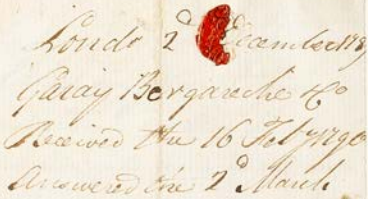 Londo 2d December 1789
Garay Bergareche & Co
Received the 16 Feby 1790
answered the 2d March